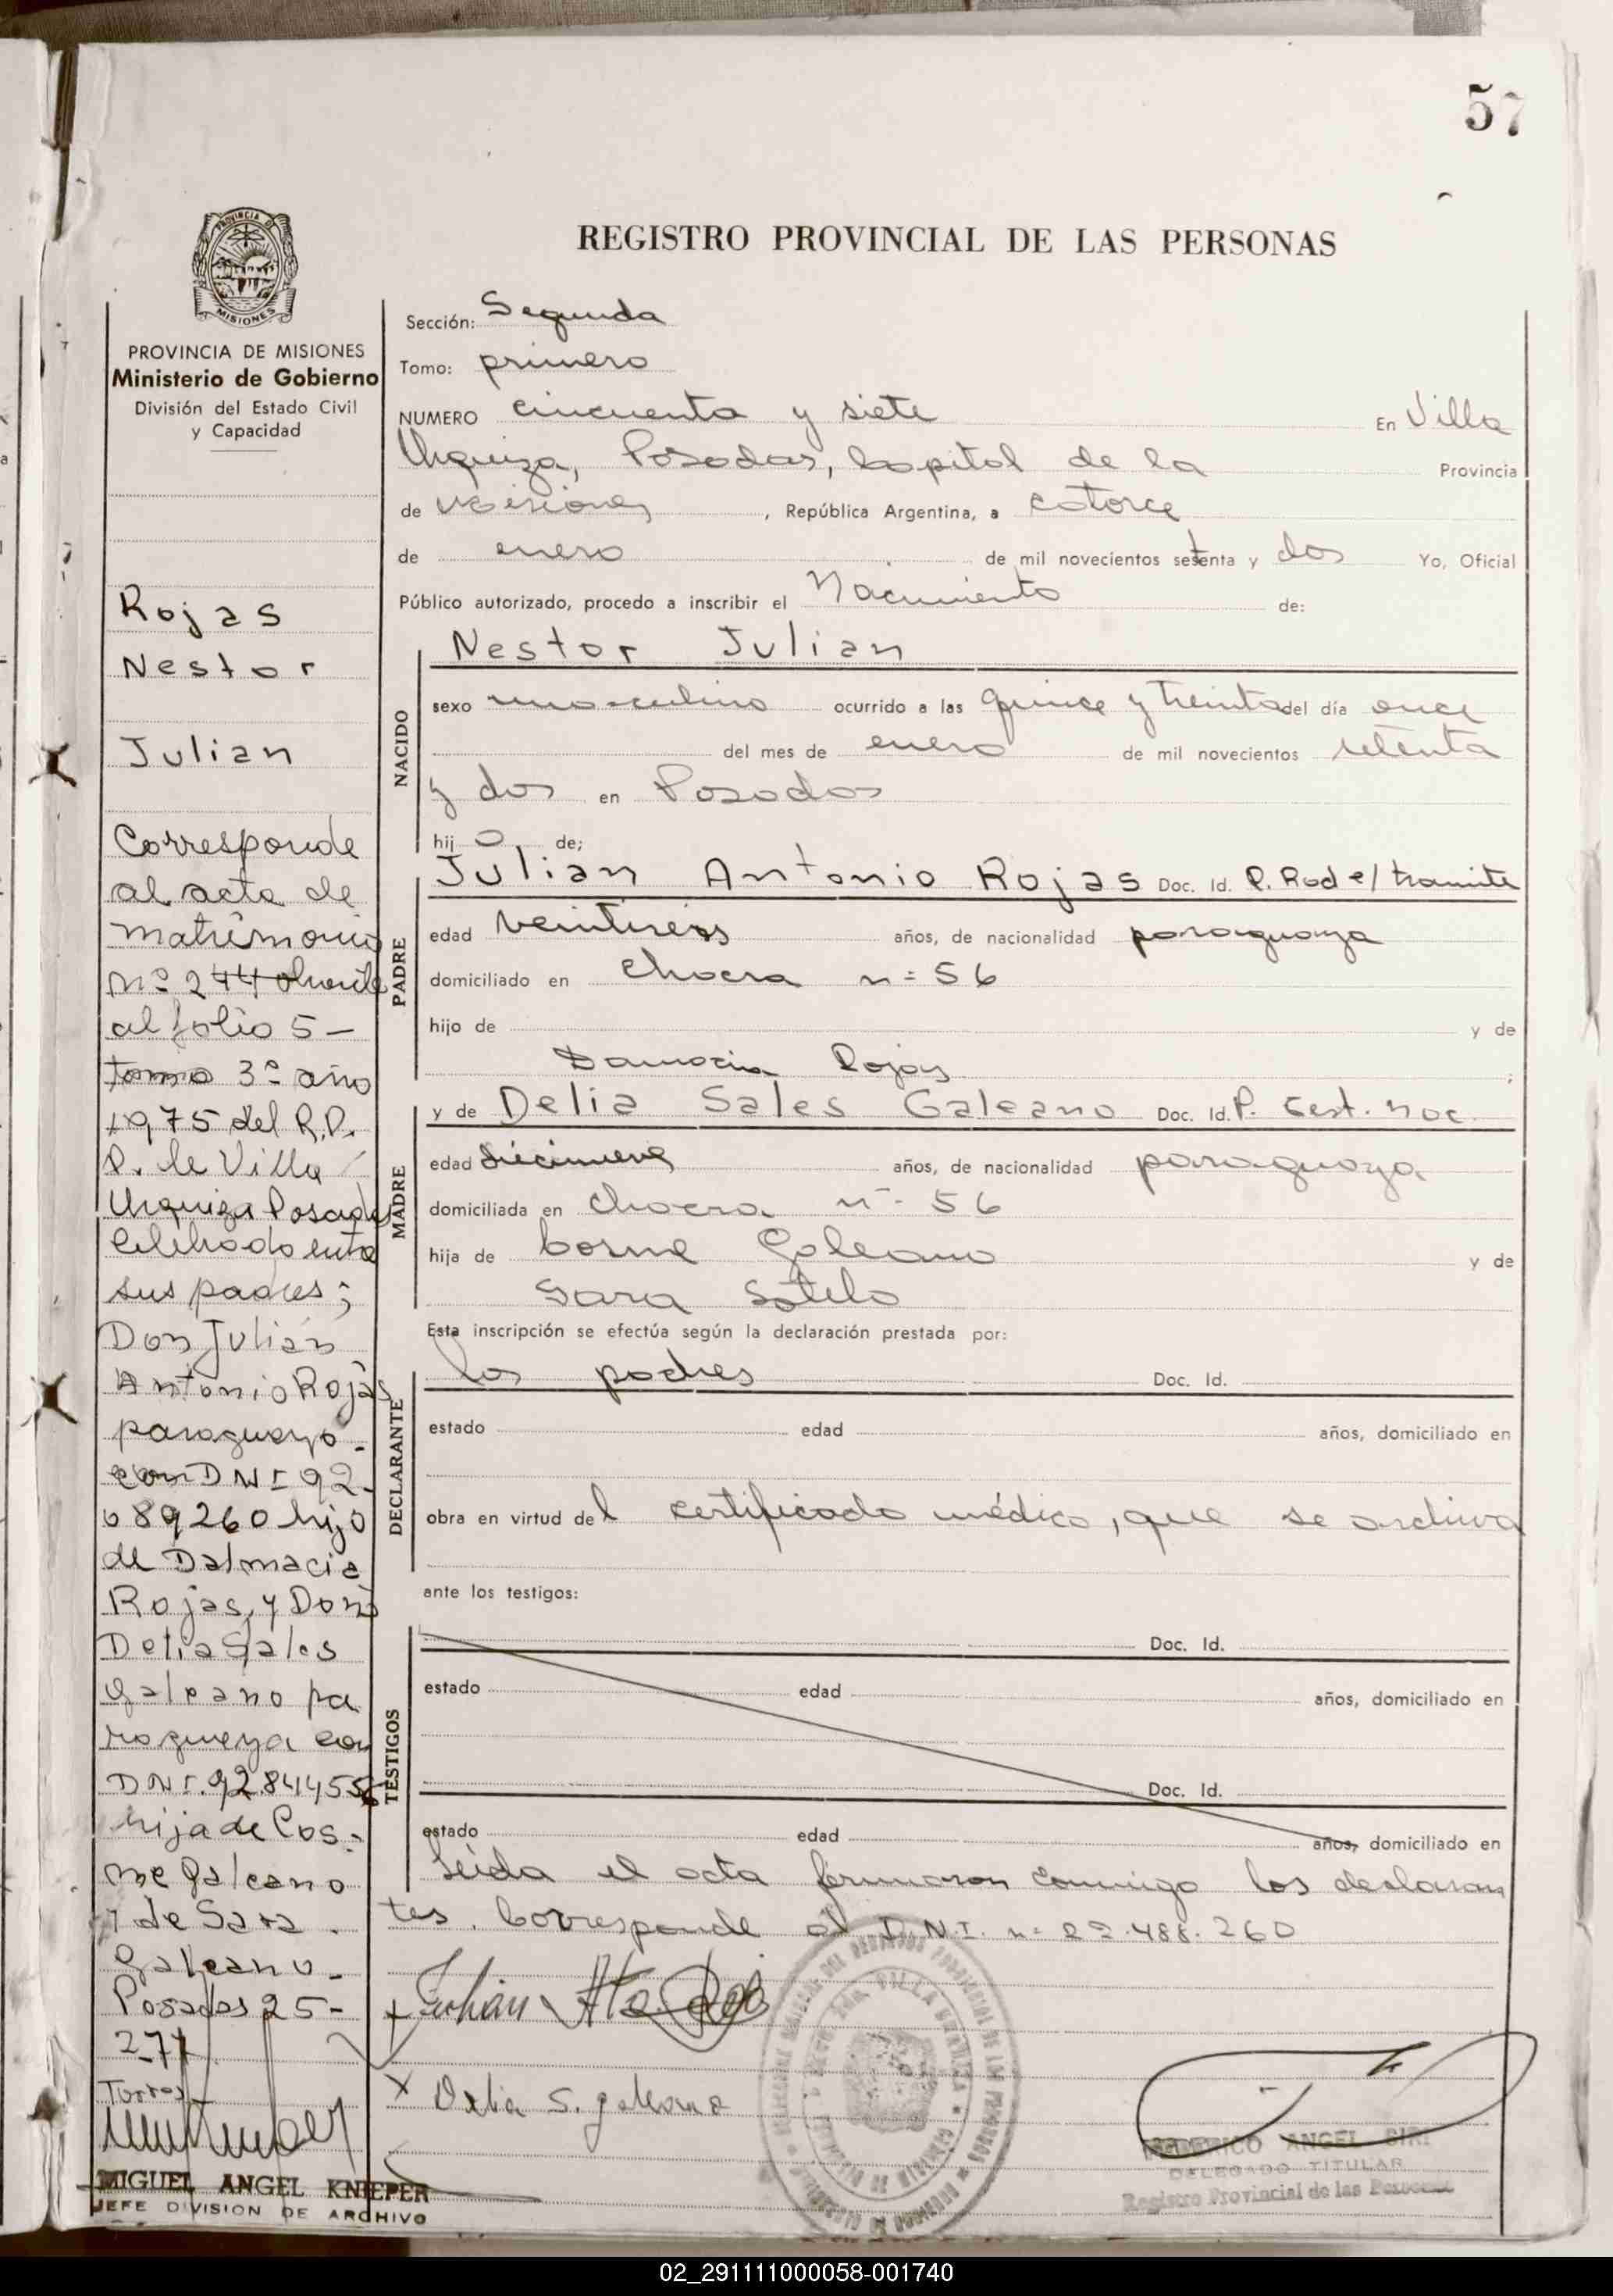 57
REGISTRO PROVINCIAL DE LAS PERSONAS
PROVINCIA DE MISIONES
Ministerio de Gobierno
División del Estado Civil
y Capacidad
Rojas
Nestor
Julian
Corresponde
al acta de
matrimonio
Nº 244
al folio 5-
tomo 3º año
1975 del R.P.
P. de Villa
Urquiza Posadas
celebrado entre
sus padres;
Don Julián
Antonio Rojas
paraguayo.
con DNI 92.
089260 hijo
de Dalmacia
Rojas, y Doña
Delia Sales
Galeano pa
raguaya con
DNI. 92.841455
hija de Cos-
me Galeano
y de Sara
Galeano-
Posadas 25-
2-77
Torres
MIGUEL ANGEL KNIEPER
JEFE DIVISION DE ARCHIVO
Sección: Segunda
Tomo: primero
NUMERO cincuenta y siete En Villa
Urquiza, Posadas, Capital de la Provincia
de Misiones, República Argentina, a catorce
de enero de mil novecientos setenta y dos Yo, Oficial
Público autorizado, procedo a inscribir el Nacimiento de:
NACIDO
Nestor Julian
sexo masculino ocurrido a las quince y treinta del día once
del mes de enero de mil novecientos setenta
y dos en Posadas
hijo de;
PADRE
Julian Antonio Rojas Doc. Id. P. Rad e/ tramite
edad veintiseis años, de nacionalidad paraguaya
domiciliado en chacra n= 56
hijo de y de
Damacia Rojas ;
MADRE
y de Delia Sales Galeano Doc. Id. P. Cert. nac.
edad diecinueve años, de nacionalidad paraguaya
domiciliada en chacra n- 56
hija de Cosme Galeano y de
Sara Sotelo
Esta inscripción se efectúa según la declaración prestada por:
DECLARANTE
los padres Doc. Id.
estado edad años, domiciliado en
obra en virtud del certificado médico, que se archiva
ante los testigos:
TESTIGOS
Doc. Id.
estado edad años, domiciliado en
Doc. Id.
estado edad años, domiciliado en
Leida el acta firmaron conmigo los declaran
tes. Corresponde al D.N.I. n= 22.488.260
x Julian Ato Rojas
x Delia S. galeano
FEDERICO ANGEL SIRI
DELEGADO TITULAR
Registro Provincial de las Personas
02_291111000058-001740